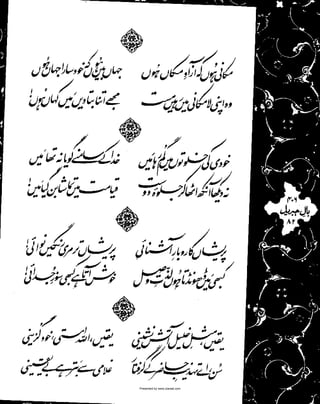 مکانی ہوں کہ آزادِ مکاں ہوں
جہاں میں ہوں کہ خود سارا جہاں ہوں
وہ اپنی لامکانی میں رہیں مست
مجھے اتنا بتا دیں میں کہاں ہوں!
خودی کی خلوتوں میں گم رہا میں
خدا کے سامنے گویا نہ تھا میں
نہ دیکھا آنکھ اٹھا کر جلوۂ دوست
قیامت میں تماشا بن گیا میں!
پریشاں کاروبارِ آشنائی
پریشاں تر مری رنگیں نوائی!
کبھی میں ڈھونڈتا ہوں لذتِ وصل
خوش آتا ہے کبھی سوزِ جدائی!
یقیں، مثلِ خلیل آتش نشینی
یقیں، اللہ مستی، خود گزینی
سن، اے تہذیبِ حاضر کے گرفتار
غلامی سے بتر ہے بے یقینی
بالِ جبریل
۸۲
Presented by www.ziaraat.com